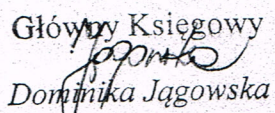 Główny Księgowy
Jągowska
Dominika Jągowska